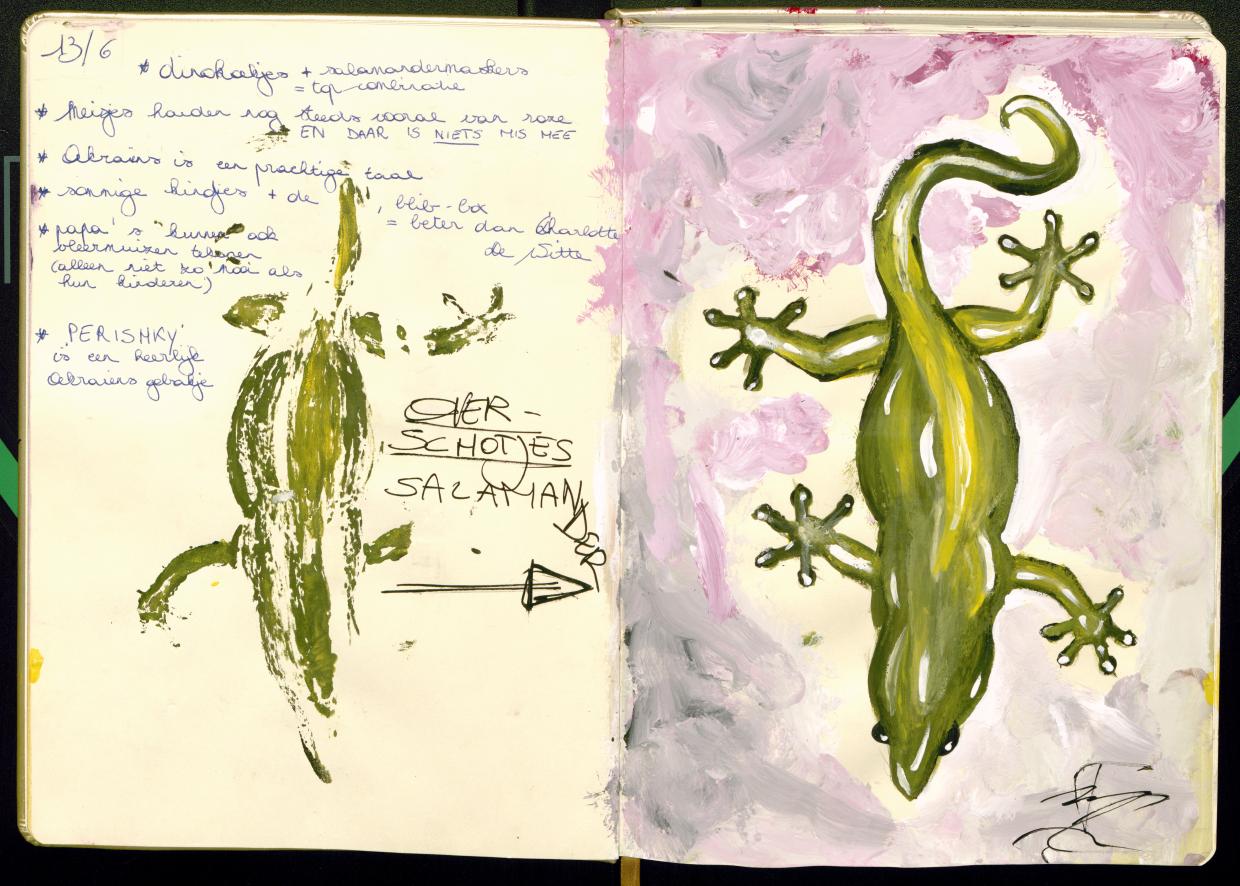 13/6
* dinokaljes + salamandermaskers
= top combinatie
* Meisjes houden nog steeds vooral van roze
EN DAAR IS NIETS MIS MEE
* Oekraïns is een prachtige taal
* sommige kindjes + de blib-box
= beter dan Charlotte
de Witte
* papa's kunnen ook
vleermuizen tekenen
(alleen niet zo mooi als
hun kinderen)
* PERISHKY
is een heerlijk
Oekraïens gebakje
OVER-
SCHOTJES
SALAMANDER